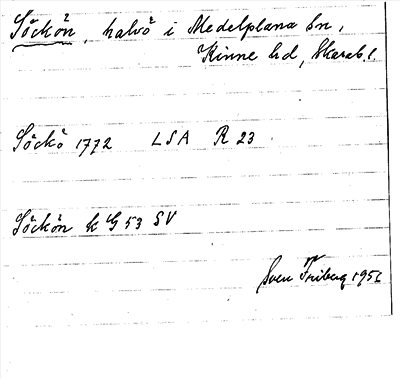 Söckön, halvö i Medelplana sn,
Kinne hd, Skarab. l.
Söckö 1772 LSA R 23
Söckön k G 53 SV
Sven Friberg 1951